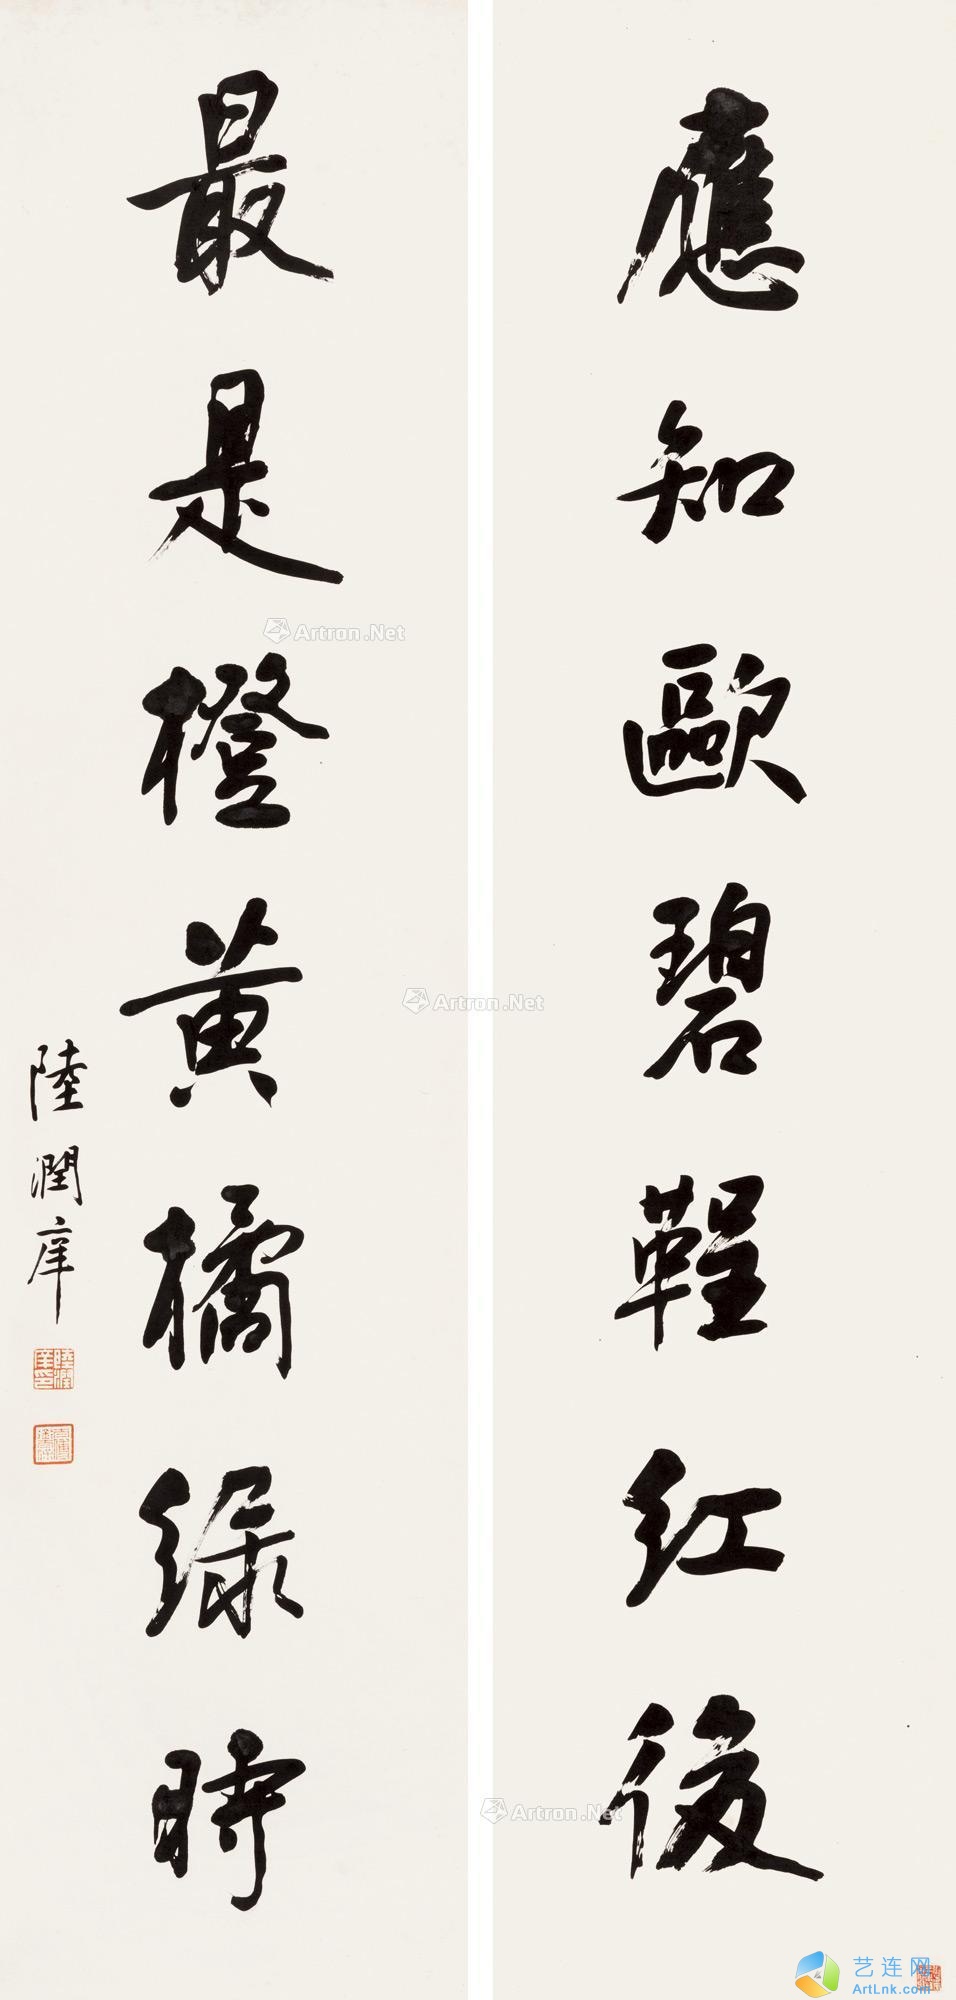 應知歐碧鞓红後
最是橙黄橘緑時
陸潤庠
Artron.Net
Artron.Net
Artron.Net
艺连网
ArtLnk.com